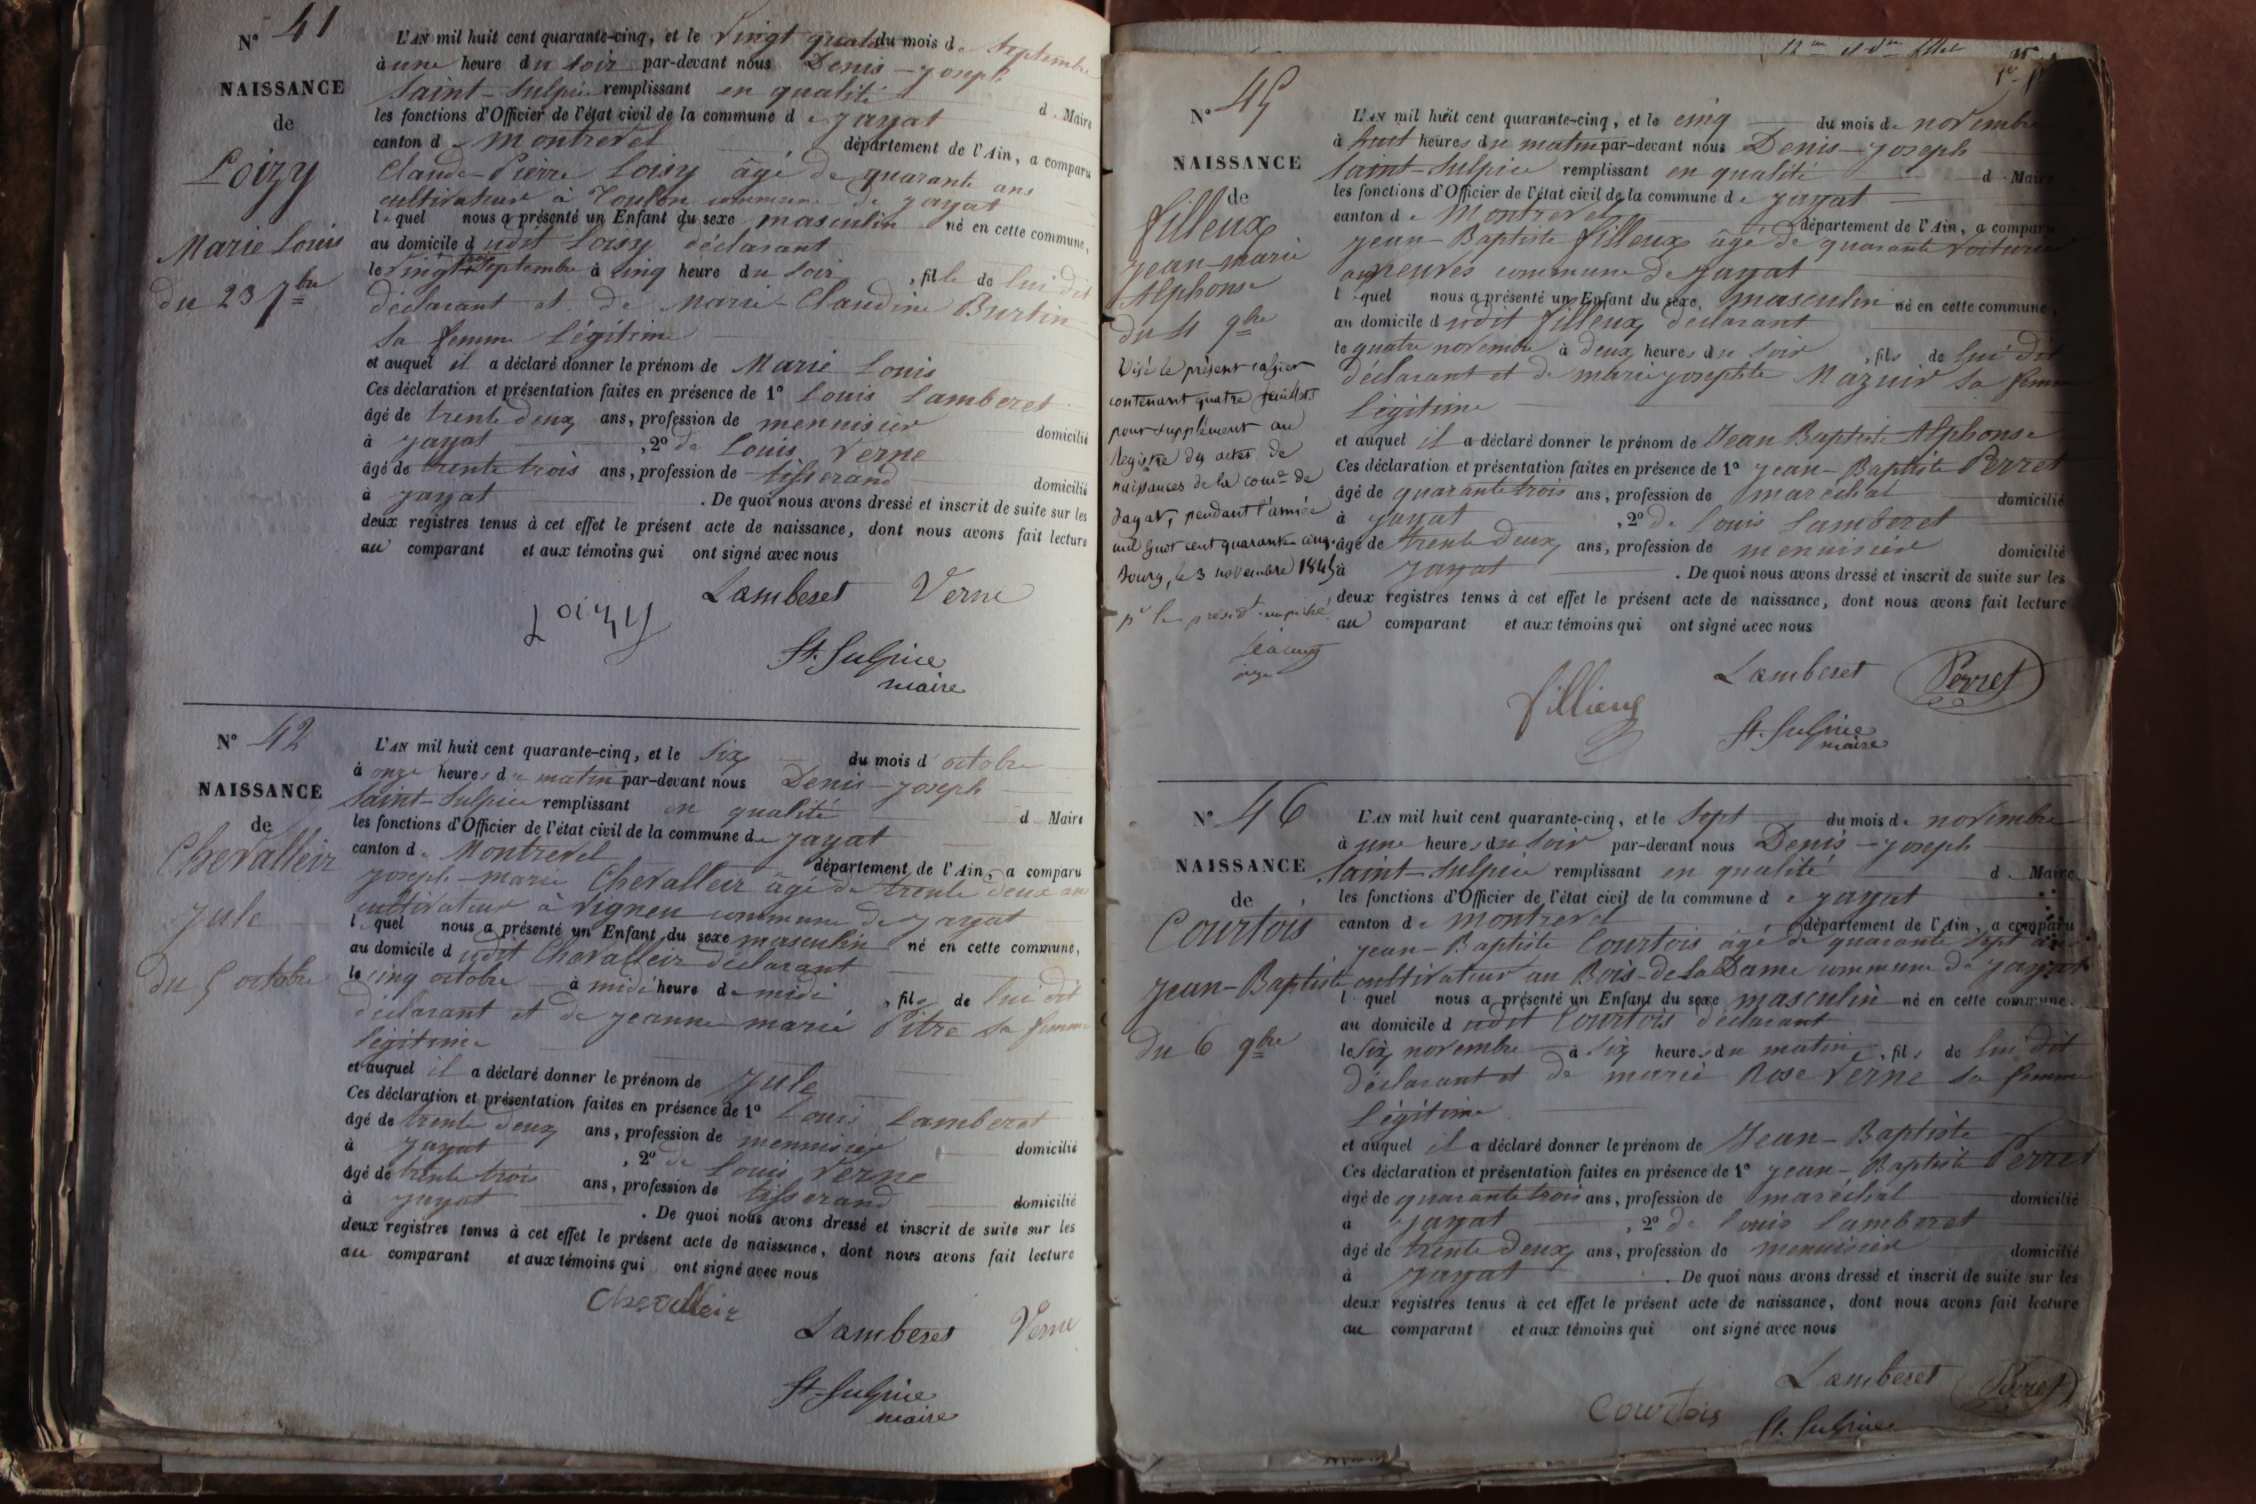 N° 41
NAISSANCE
de
Loizy
Marie Louis
du 23 7bre
L'AN mil huit cent quarante-cinq, et le vingt quatre du mois de septembre
à une heure du soir par-devant nous Denis-Joseph
Saint-Sulpice remplissant en qualité de Maire
les fonctions d'Officier de l'état civil de la commune de Jayat
canton de Montrevel département de l'Ain, a comparu
Claude-Pierre Loisy âgé de quarante ans
cultivateur à Toulon commune de Jayat
lequel nous a présenté un Enfant du sexe masculin né en cette commune,
au domicile dudit Loisy déclarant
le vingt septembre à cinq heure du soir, fils de lui dit
déclarant et de Marie-Claudine Burtin
sa femme légitime
et auquel il a déclaré donner le prénom de Marie Louis
Ces déclaration et présentation faites en présence de 1° Louis Lamberet
âgé de trente deux ans, profession de menuisier domicilié
à Jayat, 2° de Louis Verne
âgé de trente trois ans, profession de tisserand domicilié
à Jayat. De quoi nous avons dressé et inscrit de suite sur les
deux registres tenus à cet effet le présent acte de naissance, dont nous avons fait lecture
au comparant et aux témoins qui ont signé avec nous
Lamberet Verne
Loizy
St. Sulpice
maire
N° 42
NAISSANCE
de
Chevalleir
Jule
du 5 octobre
L'AN mil huit cent quarante-cinq, et le six du mois d'octobre
à onze heures du matin par-devant nous Denis-Joseph
Saint-Sulpice remplissant en qualité de Maire
les fonctions d'Officier de l'état civil de la commune de Jayat
canton de Montrevel département de l'Ain, a comparu
Joseph-Marie Chevalleir âgé de trente deux ans
cultivateur à Vigneu commune de Jayat
lequel nous a présenté un Enfant du sexe masculin né en cette commune,
au domicile dudit Chevalleir déclarant
le cinq octobre à midi heure de midi, fils de lui dit
déclarant et de Jeanne Marie Pitre sa femme
légitime
et auquel il a déclaré donner le prénom de Jule
Ces déclaration et présentation faites en présence de 1° Louis Lamberet
âgé de trente deux ans, profession de menuisier domicilié
à Jayat, 2° de Louis Verne
âgé de trente trois ans, profession de tisserand domicilié
à Jayat. De quoi nous avons dressé et inscrit de suite sur les
deux registres tenus à cet effet le présent acte de naissance, dont nous avons fait lecture
au comparant et aux témoins qui ont signé avec nous
Chevalleir
Lamberet Verne
St. Sulpice
maire
N° 45
NAISSANCE
de
Filleux
Jean-Marie
Alphonse
du 4 9bre
Visé le présent cahier
contenant quatre feuillets
pour supplément au
Registre des actes de
naissances de la comne de
Jayat, pendant l'année
mil huit cent quarante cinq.
Bourg, le 3 novembre 1845
pr le présidt empêché
juge
L'AN mil huit cent quarante-cinq, et le cinq du mois de novembre
à huit heures du matin par-devant nous Denis-Joseph
Saint-Sulpice remplissant en qualité de Maire
les fonctions d'Officier de l'état civil de la commune de Jayat
canton de Montrevel département de l'Ain, a comparu
Jean-Baptiste Filleux âgé de quarante voiturier
commune de Jayat
lequel nous a présenté un Enfant du sexe masculin né en cette commune,
au domicile dudit Filleux déclarant
le quatre novembre à deux heures du soir, fils de lui dit
déclarant et de Marie Josephte Mazuir sa femme
légitime
et auquel il a déclaré donner le prénom de Jean Baptiste Alphonse
Ces déclaration et présentation faites en présence de 1° Jean-Baptiste Perret
âgé de quarante trois ans, profession de maréchal domicilié
à Jayat, 2° de Louis Lamberet
âgé de trente deux ans, profession de menuisier domicilié
à Jayat. De quoi nous avons dressé et inscrit de suite sur les
deux registres tenus à cet effet le présent acte de naissance, dont nous avons fait lecture
au comparant et aux témoins qui ont signé avec nous
Lamberet Perret
Fillieux
St. Sulpice
maire
N° 46
NAISSANCE
de
Courtois
Jean-Baptiste
du 6 9bre
L'AN mil huit cent quarante-cinq, et le sept du mois de novembre
à une heure du soir par-devant nous Denis-Joseph
Saint-Sulpice remplissant en qualité de Maire
les fonctions d'Officier de l'état civil de la commune de Jayat
canton de Montrevel département de l'Ain, a comparu
Jean-Baptiste Courtois âgé de quarante sept ans
cultivateur au Bois-de la Dame commune de Jayat
lequel nous a présenté un Enfant du sexe masculin né en cette commune,
au domicile dudit Courtois déclarant
le six novembre à six heures du matin, fils de lui dit
déclarant et de Marie Rose Verne sa femme
légitime
et auquel il a déclaré donner le prénom de Jean-Baptiste
Ces déclaration et présentation faites en présence de 1° Jean-Baptiste Perret
âgé de quarante trois ans, profession de maréchal domicilié
à Jayat, 2° de Louis Lamberet
âgé de trente deux ans, profession de menuisier domicilié
à Jayat. De quoi nous avons dressé et inscrit de suite sur les
deux registres tenus à cet effet le présent acte de naissance, dont nous avons fait lecture
au comparant et aux témoins qui ont signé avec nous
Lamberet Perret
Courtois
St. Sulpice